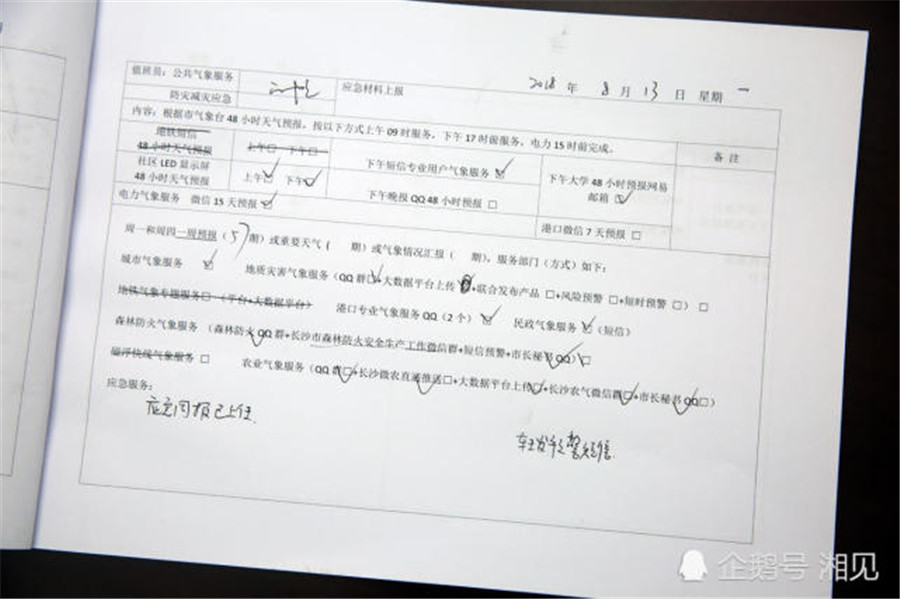 2018 年 8 月 13 日 星期 一
值班员：公共气象服务
防灾减灾应急
应急材料上报
内容：根据市气象台 48 小时天气预报，按以下方式上午 09 时服务，下午 17 时前服务，电力 15 时前完成。
备 注
地铁短信
48 小时天气预报
上午□ 下午□
下午短信专业用户气象服务□
下午大学 48 小时预报网易
邮箱□
社区 LED 显示屏
48 小时天气预报
上午□ 下午□
下午晚报 QQ 48 小时预报 □
电力气象服务 微信 15 天预报□
港口微信 7 天预报 □
周一和周四一周预报（ 5 期）或重要天气（ 期）或气象情况汇报（ 期），服务部门（方式）如下：
城市气象服务 □ 地质灾害气象服务（QQ 群□+大数据平台上传□+联合发布产品 □+风险预警 □+短时预警 □） □
地铁气象专题服务□（平台+大数据平台） 港口专业气象服务 QQ（2 个）□ 民政气象服务□（短信）
森林防火气象服务 （森林防火 QQ 群+长沙市森林防火安全生产工作微信群+短信预警+市长秘书 QQ）□
磁浮快线气象服务 □ 农业气象服务（QQ 群□+长沙微农直通推送□+大数据平台上传□+长沙农气微信群□+市长秘书 QQ□）
应急服务：
已上传
短信
企鹅号 湘见